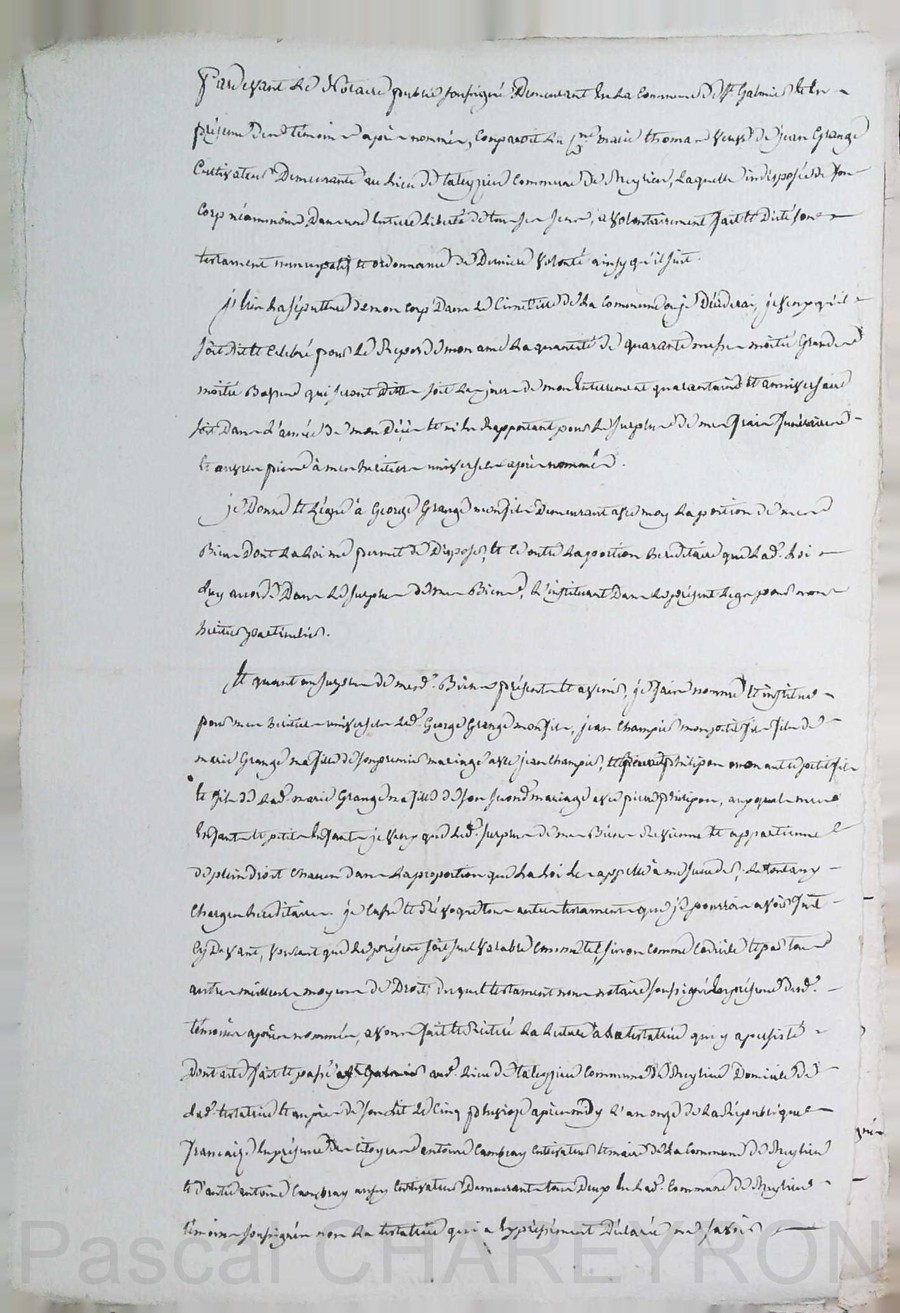 Pardevant Le Notaire public soussigné Demeurant En La Commune de St Galmier Et En
présence des témoins après nommés, Comparut La Cne marie thomas veuve de jean Grange
Cultivateur Demeurante au Lieu de Commune de Laquelle indisposée de son
Corp néammoins Dans une Entiere Liberté de tous ses sens, a volontairement fait Et Dicté son
testament nuncupatif et ordonnance de Derniere volonté ainsy qu'il suit.
j'Elis La sépulture de mon corp Dans Le Cimetiere de La Commune ou je Décéderai, je veux qu'il
soit dit Et Celébré pour Le Repos de mon ame La quantité de quarante messes moitié Grandes
moitié Basses qui seront Dittes soit Les jours de mon Enterrement quarantaine Et anniversaire
soit Dans L'année de mon Décès Et m'En Rapportant pour Le surplus de mes frais funéraires
Et œuvres pies à mes heritiers universels après nommés.
je Donne Et Légue à George Grange mon fils Demeurant avec moy La portion de mes
Biens Dont La Loi me permet de Disposer, Et Ce outre La portion hereditaire que Lad. Loi
Luy accorde Dans Le surplus de mes Biens, L'instituant Dans Le présent Legs pour mon
heritier particulier.
Et quant au surplus de mesd. Biens présents Et avenir, je fais nomme Et institue
pour mes heritiers universels Led. George Grange mon fils, jean Champier mon petit fils fils de
marie Grange ma fille de son premier mariage avec jean Champier, Et pierre philipon mon autre petit fils
Et fils de Lad. marie Grange ma fille de son second mariage avec pierre philipon, auxquels mes
Enfants Et petits Enfants je veux que Led. surplus de mes Biens Et appartienne
de plein droit Chacun dans La proportion que La Loi Les appelle à me succeder, Le tout aux
Charges hereditaires. je Casse Et Révoque tous autres testaments que je pourrois avoir fait
Cy Devant, voulant que Le présent soit seul valable Comme tel sinon Comme Codicile Et par tous
autres meilleurs moyens de Droit, duquel testament nous notaire soussigné En présence desd.
témoins après nommés, avons fait Et réiteré La Lecture à La testatrice qui y a persisté
Dont acte fait Et passé aud. Lieu de Commune de Domicile de
Lad. testatrice Et au pied de son Lit Le Cinq pluviose après midy L'an onze de La République
francaise. En présence des Citoyens antoine Cultivateur Et maire de La Commune de
Et d'autre antoine aussy Cultivateur Demeurants tous Deux En Lad. Commune de
témoins soussignés non La testatrice qui a Expressément Déclaré ne savoir
Pascal CHAREYRON